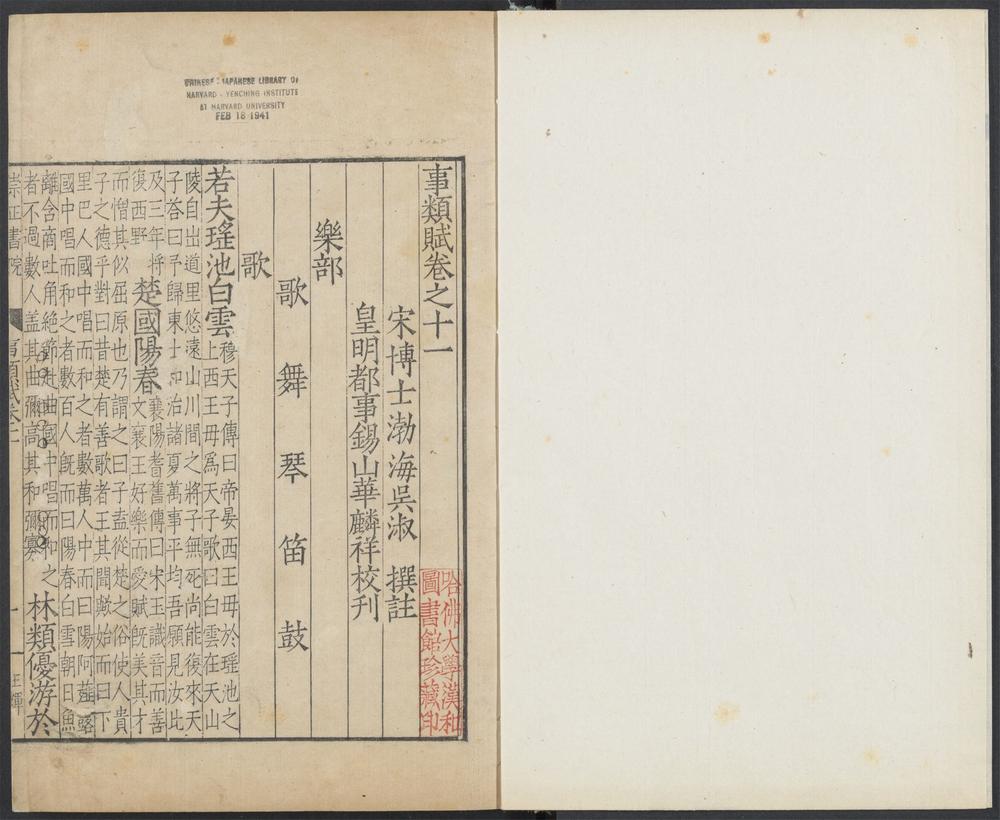 CHINESE - JAPANESE LIBRARY OF
HARVARD - YENCHING INSTITUTE
AT HARVARD UNIVERSITY
FEB 18 1941
事類賦卷之十一
宋博士渤海吳淑 撰註
皇明都事錫山華麟祥校刊
樂部
歌 舞 琴 笛 鼓
歌
若夫瑤池白雲
穆天子傳曰帝宴西王母於瑤池之
上西王母爲天子歌曰白雲在天山
陵自出道里悠遠山川間之將子無死尚能復來天
子答曰予歸東土和治諸夏萬事平均吾願見汝比
及三年將
復西野
楚國陽春
襄陽耆舊傳曰宋玉識音而善
文襄王好樂而愛賦旣美其才
而憎其似屈原也乃謂之曰子盍從楚之俗使人貴
子之德乎對曰昔楚有善歌者王其聞歟始而曰下
里巴人國中唱而和之者數萬人中而曰陽阿薤露
國中唱而和之者數百人旣而曰陽春白雪朝日魚
離含商吐角絶節赴曲國中唱而和之
者不過數人盖其曲彌高其和彌寡
林類優游於
崇正書院
事類賦卷十一
一
哈佛大學漢和
圖書館珍藏印